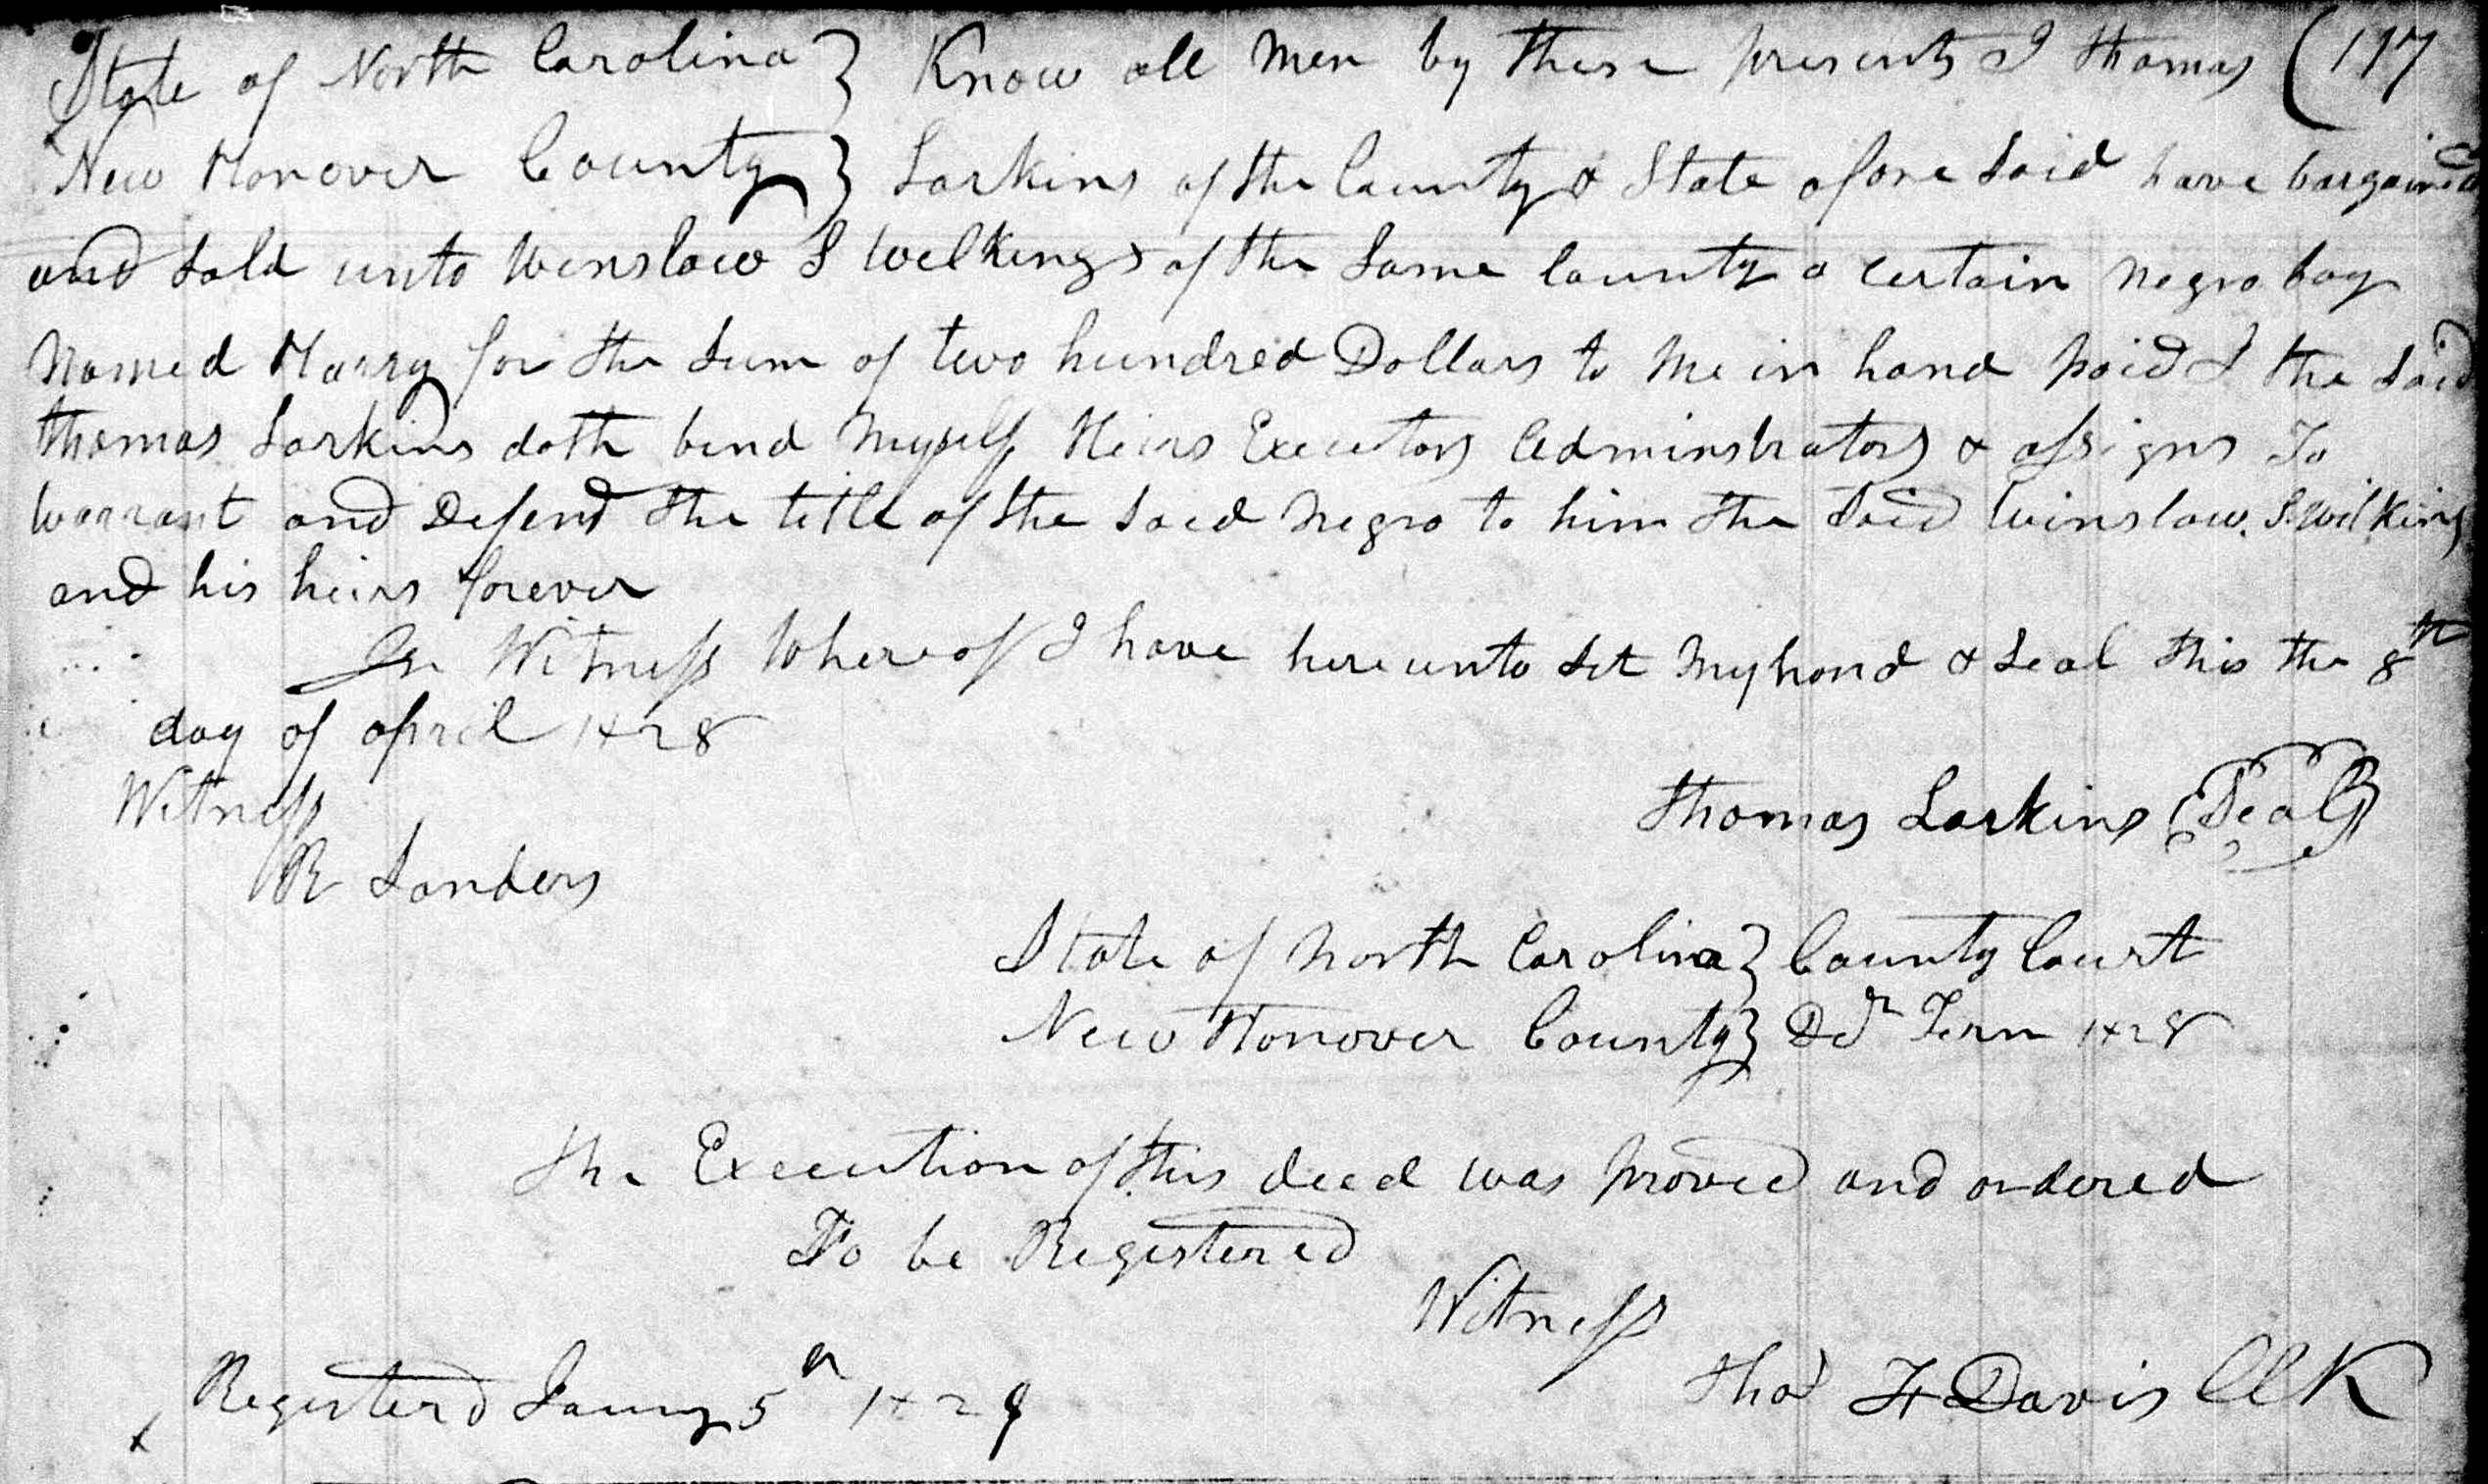 State of North Carolina } Know all Men by these presents I Thomas ( 117
New Hanover County } Larkins of the County & State afore Said have bargained
and Sold unto Winslow S Welkings of the Same County a certain Negro boy
Named Harry for the Sum of two hundred Dollars to Me in hand paid I the Said
Thomas Larkins doth bind Myself Heirs Executors Adminstrators & assigns To
Warrant and Defend the title of the Said Negro to him the Said Winslow. S. Wilkings
and his heirs forever
In Witness Whereof I have here unto Set My hand & Seal this the 8th
day of April 1828
Witness
Thomas Larkins (Seal)
R Sanders
State of North Carolina } County Court
New Hanover County } Dcr Term 1828
The Execution of this deed was proved and ordered
To be Registered
Witness
Registerd Jauny 5th 1829
Thos F Davis Clk